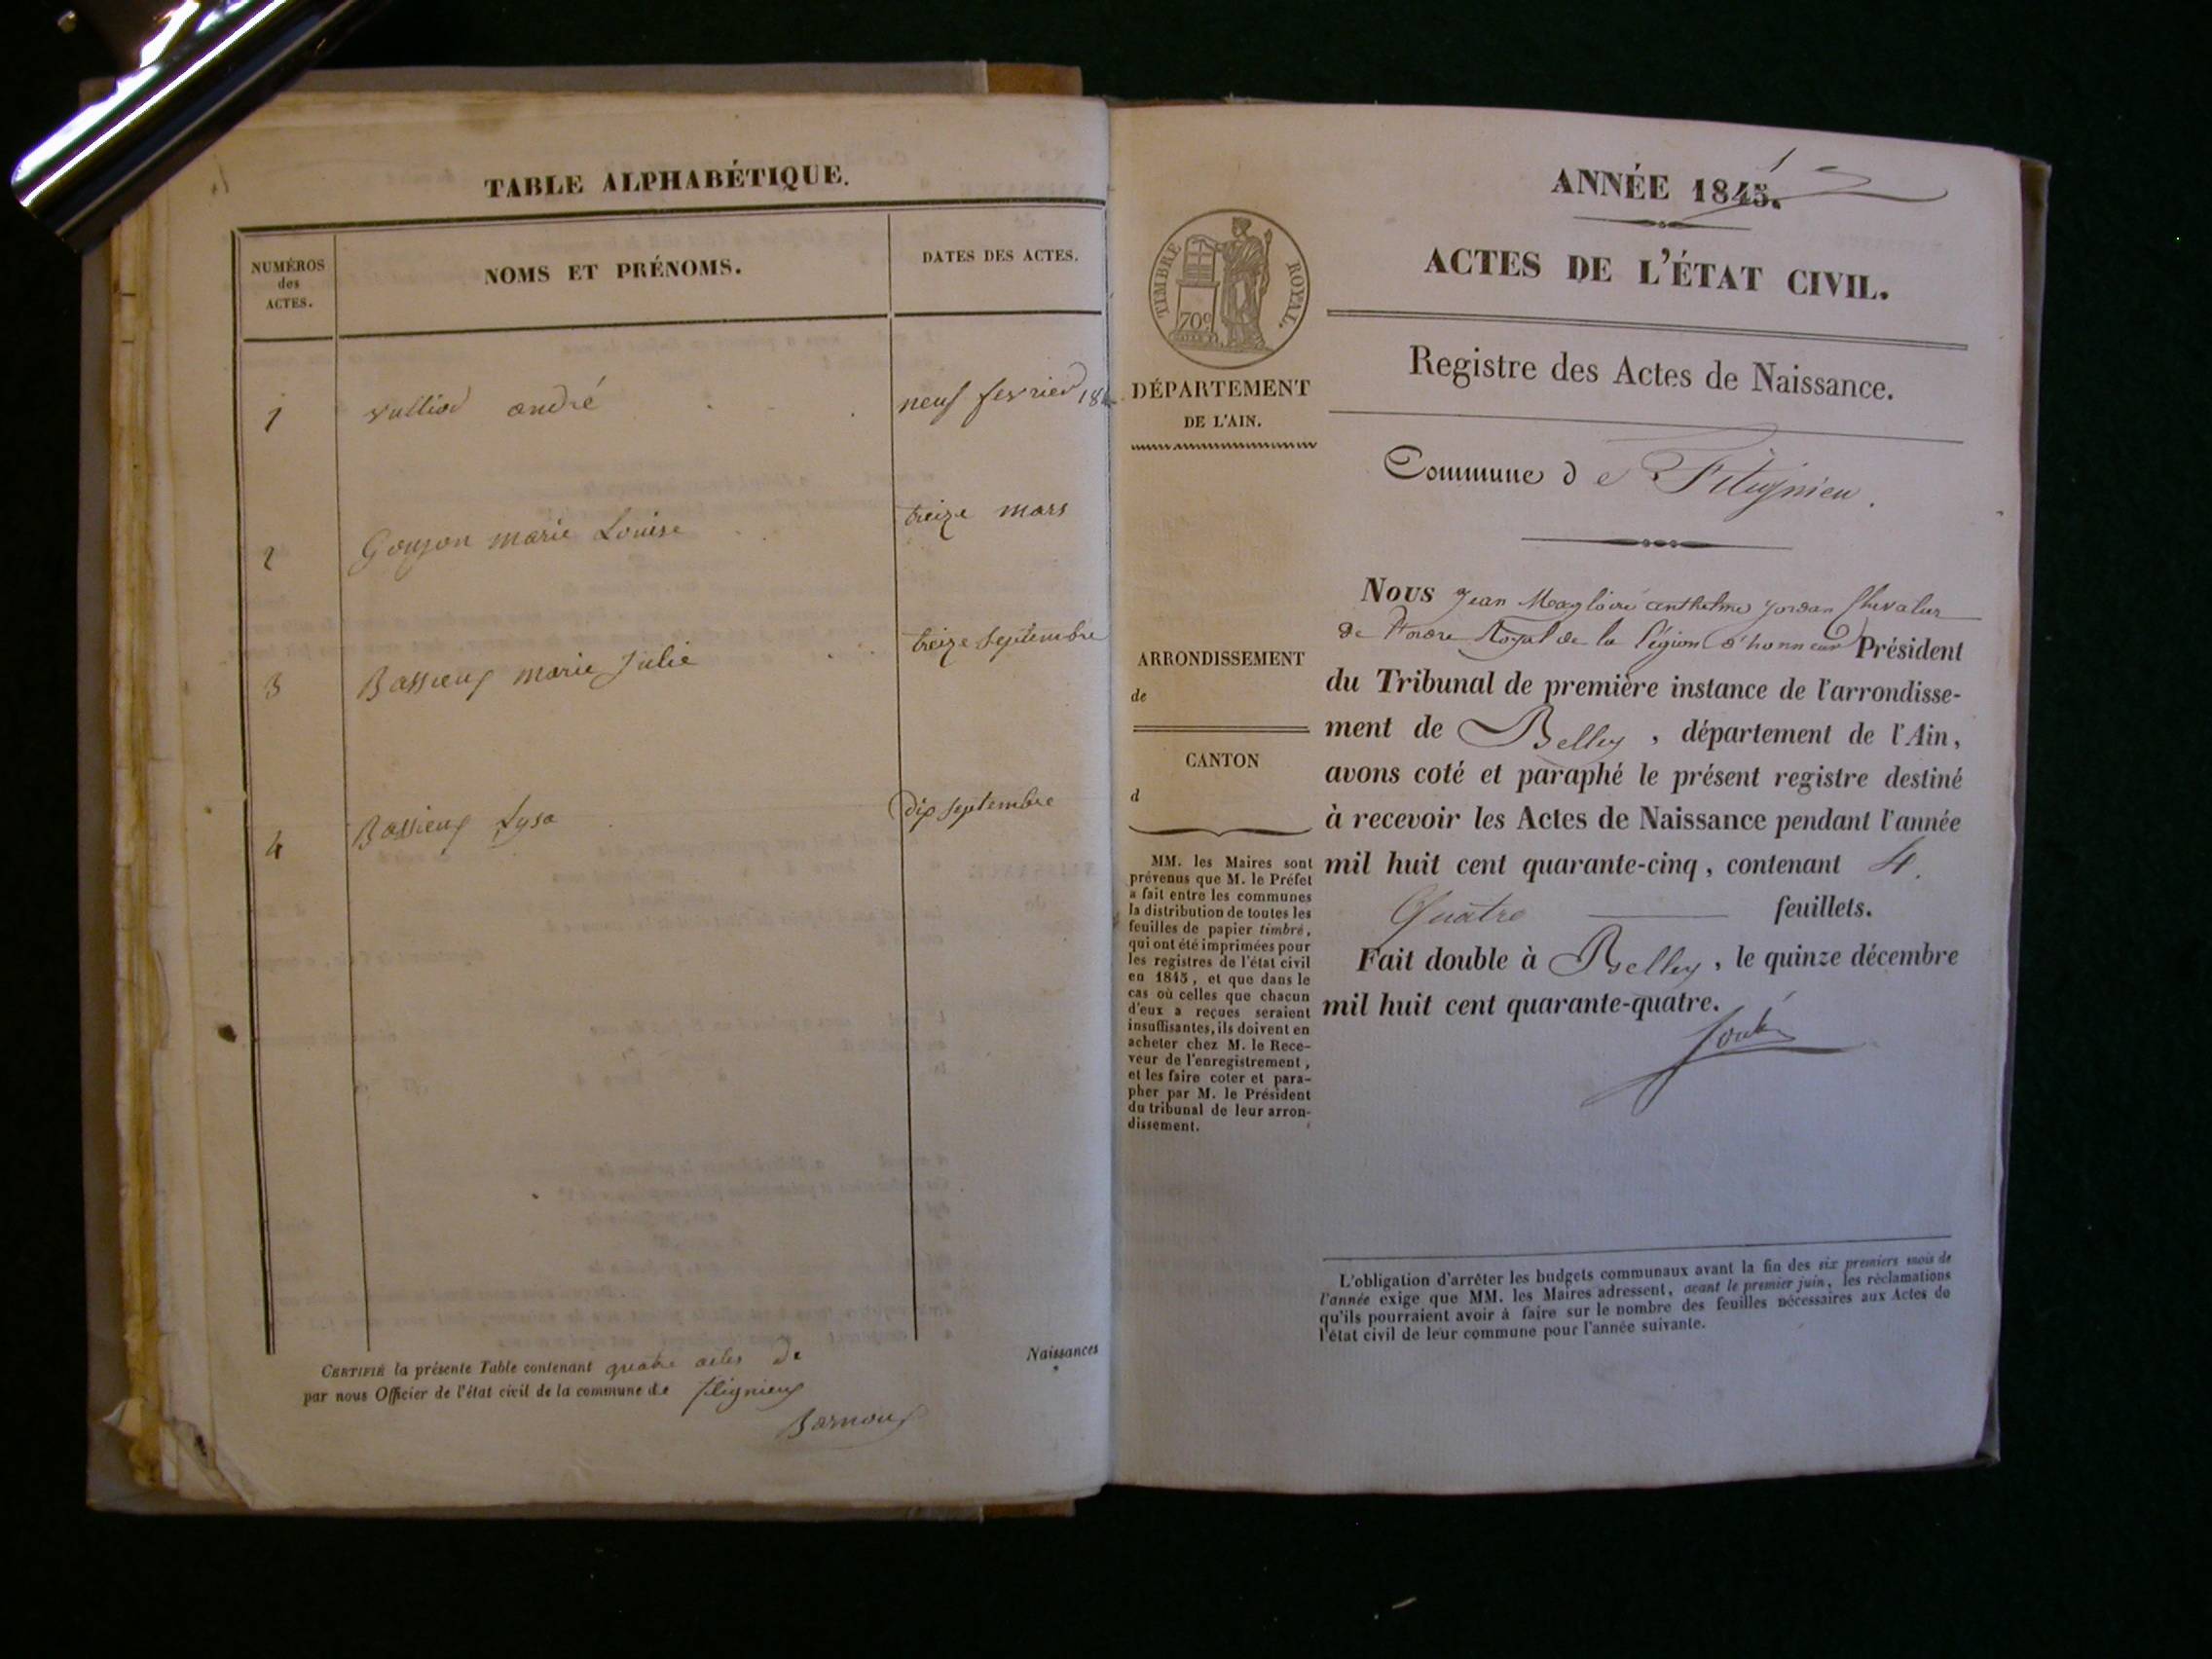 TABLE ALPHABÉTIQUE.
NUMÉROS
des
ACTES.
NOMS ET PRÉNOMS.
DATES DES ACTES.
1 vulliod andré neuf fevrier 184
2 Goujon marie Louise treize mars
3 Bassieux marie Julie treize septembre
4 Bassieux Lysa dix septembre
CERTIFIÉ la présente Table contenant quatre actes de Naissances
par nous Officier de l'état civil de la commune de flignieux
Barnoux
1
ANNÉE 1845.
ACTES DE L'ÉTAT CIVIL.
TIMBRE ROYAL.
70c
DÉPARTEMENT
DE L'AIN.
Registre des Actes de Naissance.
Commune de Fitignieu.
ARRONDISSEMENT
de
CANTON
d
MM. les Maires sont
prévenus que M. le Préfet
a fait entre les communes
la distribution de toutes les
feuilles de papier timbré,
qui ont été imprimées pour
les registres de l'état civil
en 1845, et que dans le
cas où celles que chacun
d'eux a reçues seraient
insuffisantes, ils doivent en
acheter chez M. le Rece-
veur de l'enregistrement,
et les faire coter et para-
pher par M. le Président
du tribunal de leur arron-
dissement.
Nous Jean Magloire anthelme Jordan Chevalier
de l'ordre Royal de la légion d'honneur Président
du Tribunal de première instance de l'arrondisse-
ment de Belley, département de l'Ain,
avons coté et paraphé le présent registre destiné
à recevoir les Actes de Naissance pendant l'année
mil huit cent quarante-cinq, contenant 4.
Quatre feuillets.
Fait double à Belley, le quinze décembre
mil huit cent quarante-quatre.
L'obligation d'arrêter les budgets communaux avant la fin des six premiers mois de
l'année exige que MM. les Maires adressent, avant le premier juin, les réclamations
qu'ils pourraient avoir à faire sur le nombre des feuilles nécessaires aux Actes de
l'état civil de leur commune pour l'année suivante.